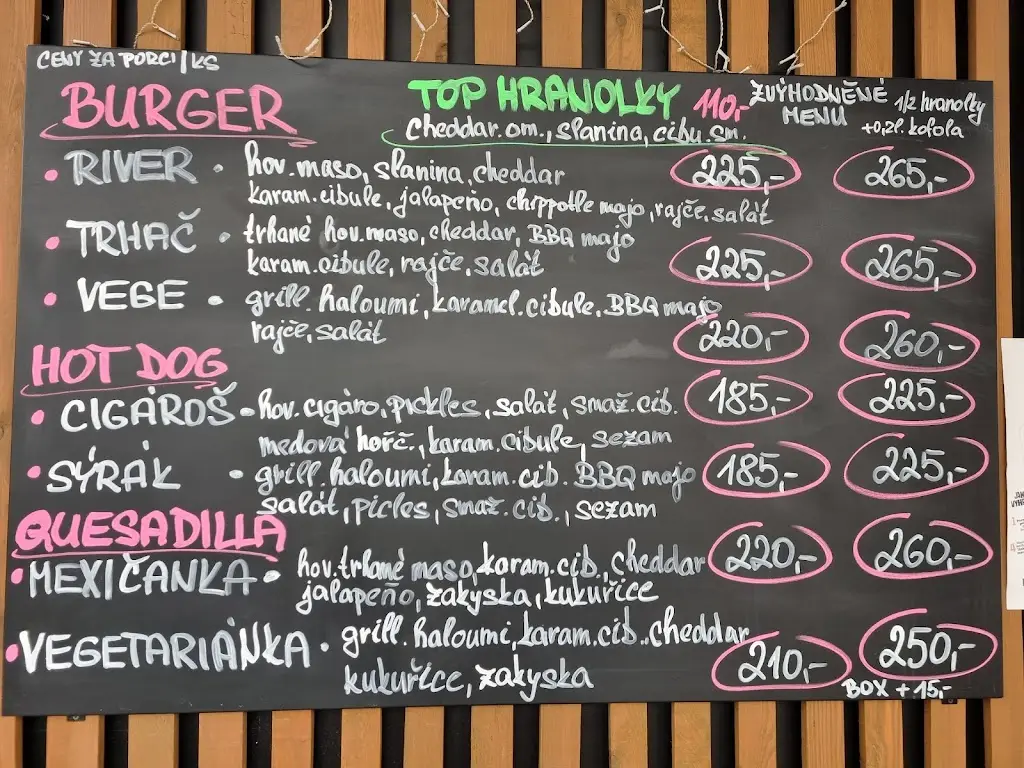 CENY ZA PORCI/KS
BURGER
TOP HRANOLKY 110,-
cheddar.om., slanina, cibu.sm.
ZVÝHODNĚNÉ MENU
1/2 hranolky
+0,2l. kofola
• RIVER • hov. maso, slanina, cheddar 225,- 265,-
karam.cibule, jalapeño, chippotle majo, rajče, salát
• TRHAČ • trhané hov.maso, cheddar, BBQ majo 225,- 265,-
karam.cibule, rajče, salát
• VEGE • grill. haloumi, karamel.cibule, BBQ majo 220,- 260,-
rajče, salát
HOT DOG
• CIGÁROŠ • hov. cigáro, pickles, salát, smaž.cib. 185,- 225,-
medová hořč., karam.cibule, sezam
• SÝRÁK • grill. haloumi, karam.cib. BBQ majo 185,- 225,-
salát, picles, smaž.cib., sezam
QUESADILLA
• MEXIČANKA • hov.trhané maso, karam.cib., cheddar 220,- 260,-
jalapeño, zakyska, kukuřice
• VEGETARIÁNKA • grill. haloumi, karam.cib.. cheddar 210,- 250,-
kukuřice, zakyska
BOX + 15,-